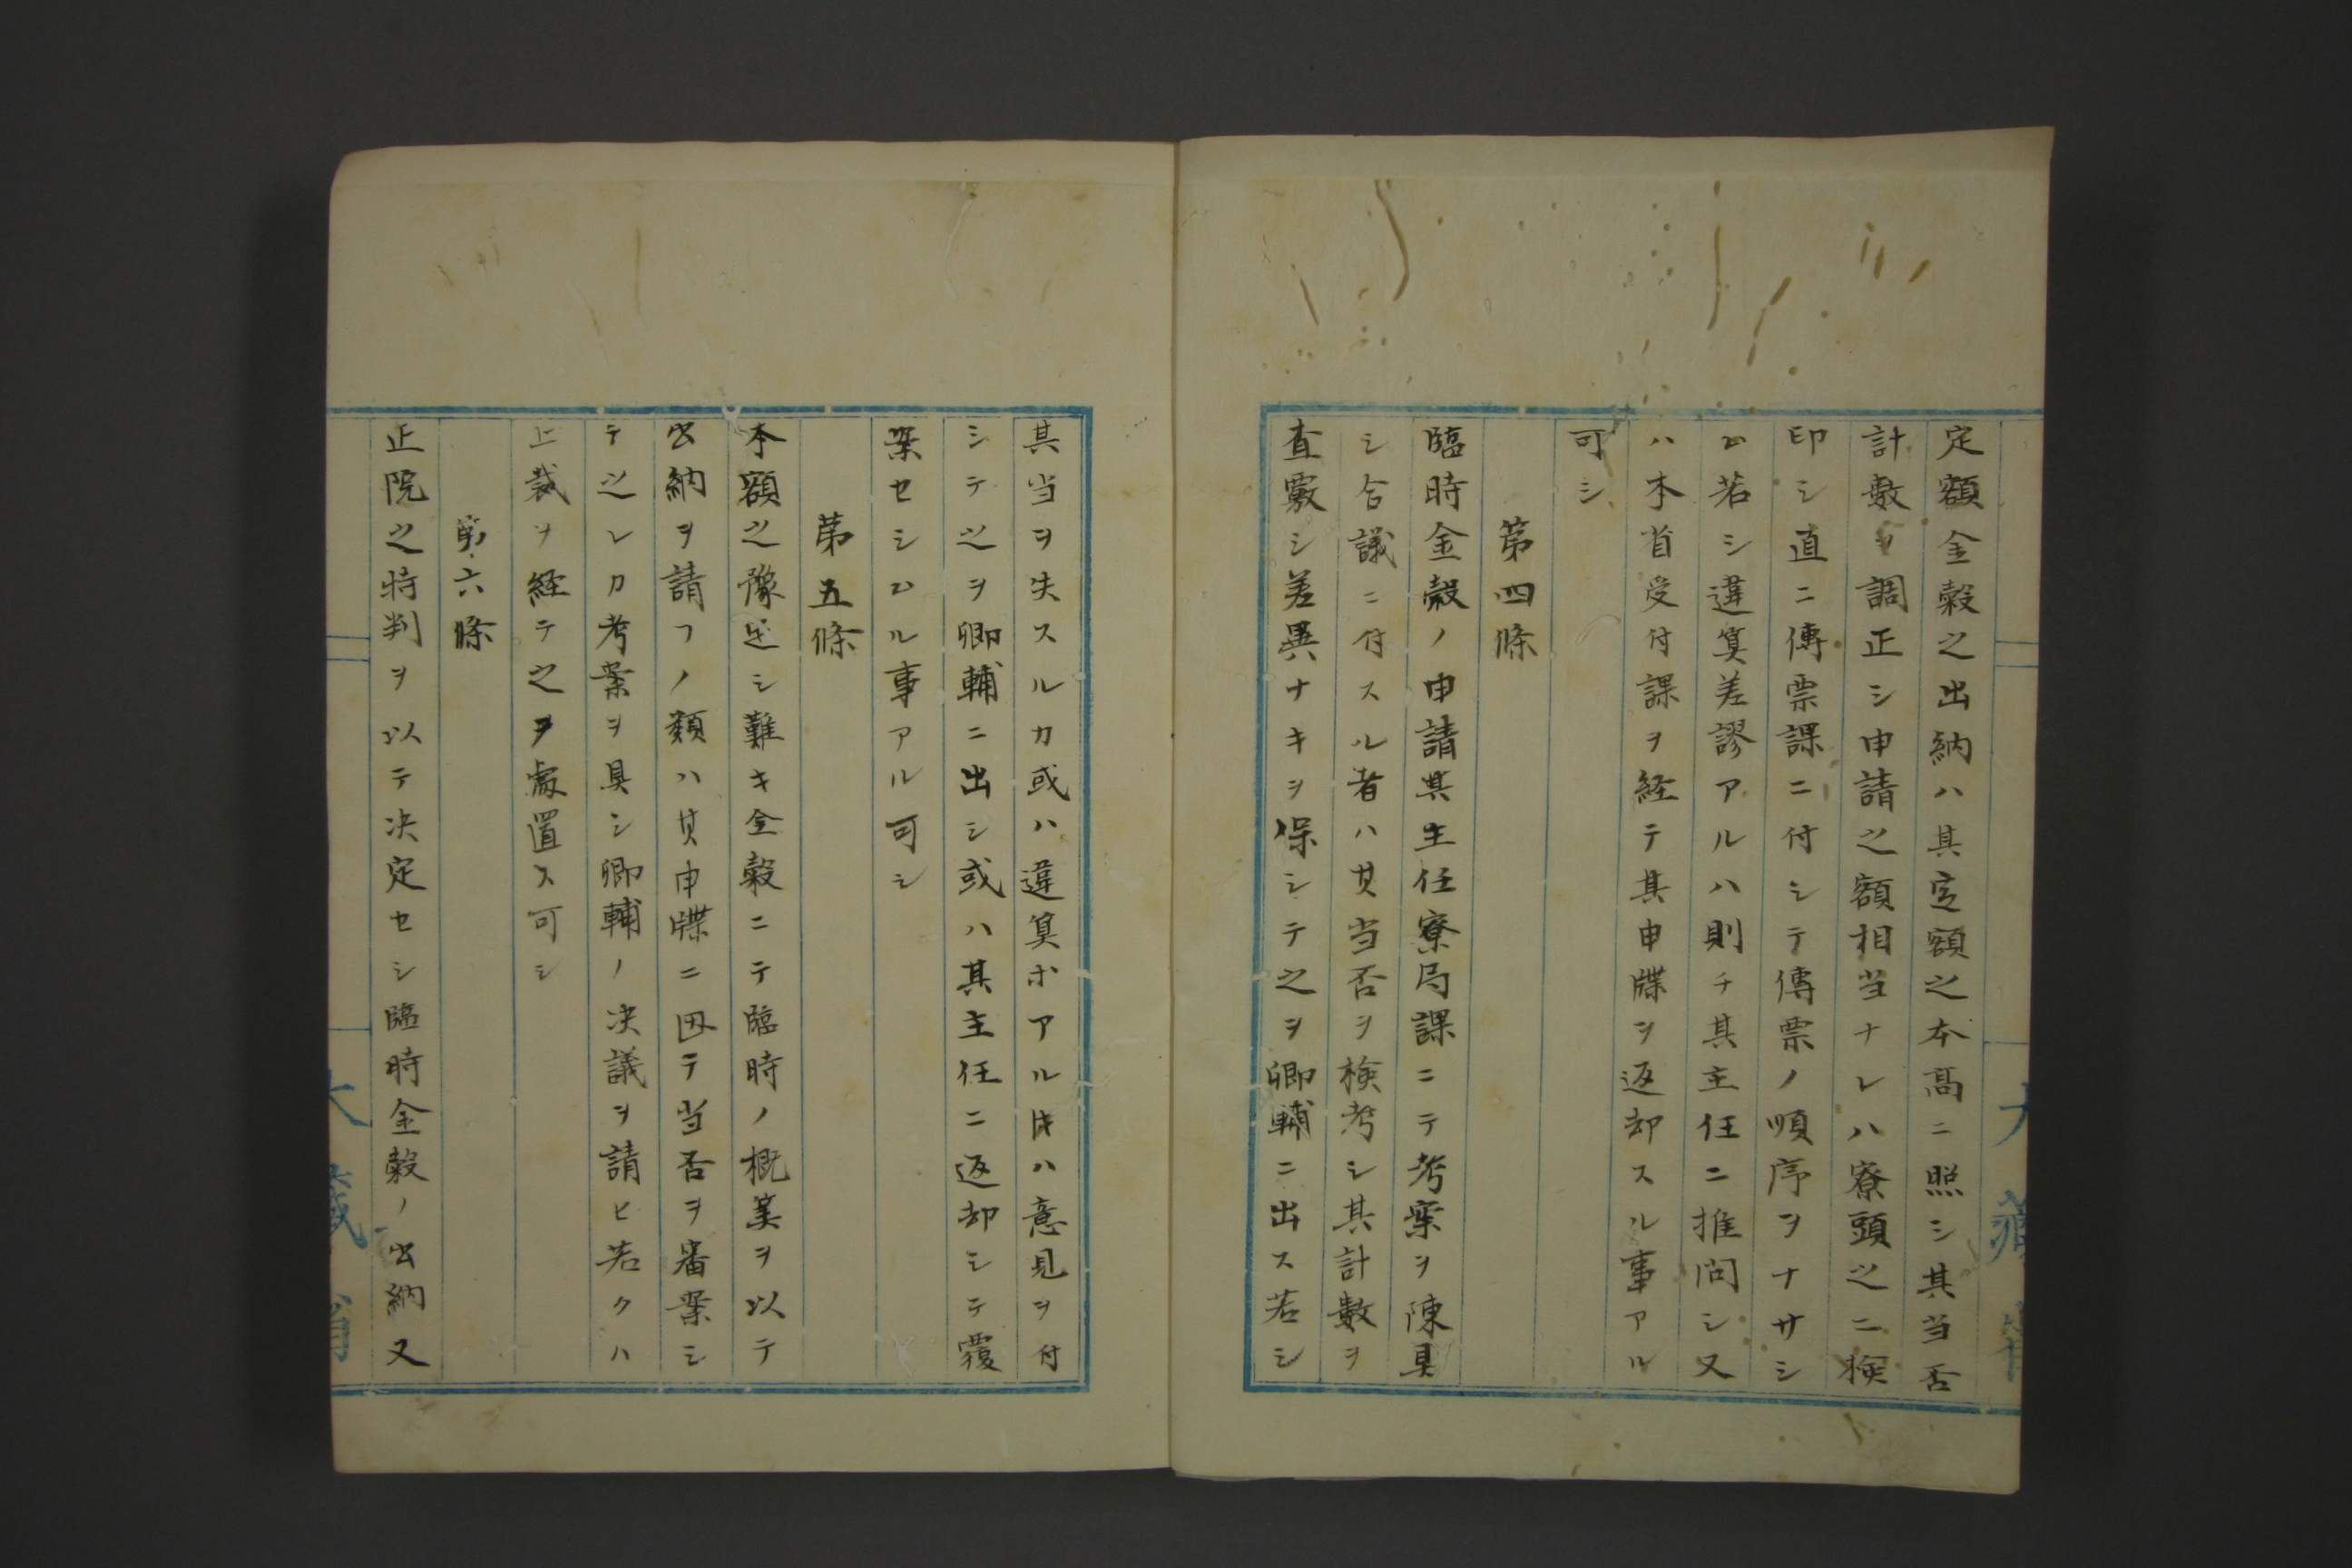 定額金穀之出納ハ其定額之本髙ニ照シ其当否
計數ヲ調正シ申請之額相当ナレハ寮頭之ニ検
印シ直ニ傳票課ニ付シテ傳票ノ順序ヲナサシ
ム若シ違算差謬アルハ則チ其主任ニ推問シ又
ハ本省受付課ヲ経テ其申牒ヲ返却スル事アル
可シ
第四條
臨時金穀ノ申請其主任寮局課ニテ考案ヲ陳具
シ合議ニ付スル者ハ其当否ヲ検考シ其計數ヲ
査覈シ差異ナキヲ保シテ之ヲ卿輔ニ出ス若シ
其当ヲ失スルカ或ハ違算ホアル𪜈ハ意見ヲ付
シテ之ヲ卿輔ニ出シ或ハ其主任ニ返却シテ覆
案セシムル事アル可シ
第五條
本額之豫定シ難キ金穀ニテ臨時ノ概算ヲ以テ
出納ヲ請フノ類ハ其申牒ニ因テ当否ヲ審案シ
テ之レカ考案ヲ具シ卿輔ノ决議ヲ請ヒ若クハ
上裁ヲ経テ之ヲ處置ス可シ
第六條
正院之特判ヲ以テ决定セシ臨時金穀ノ出納又
大藏省